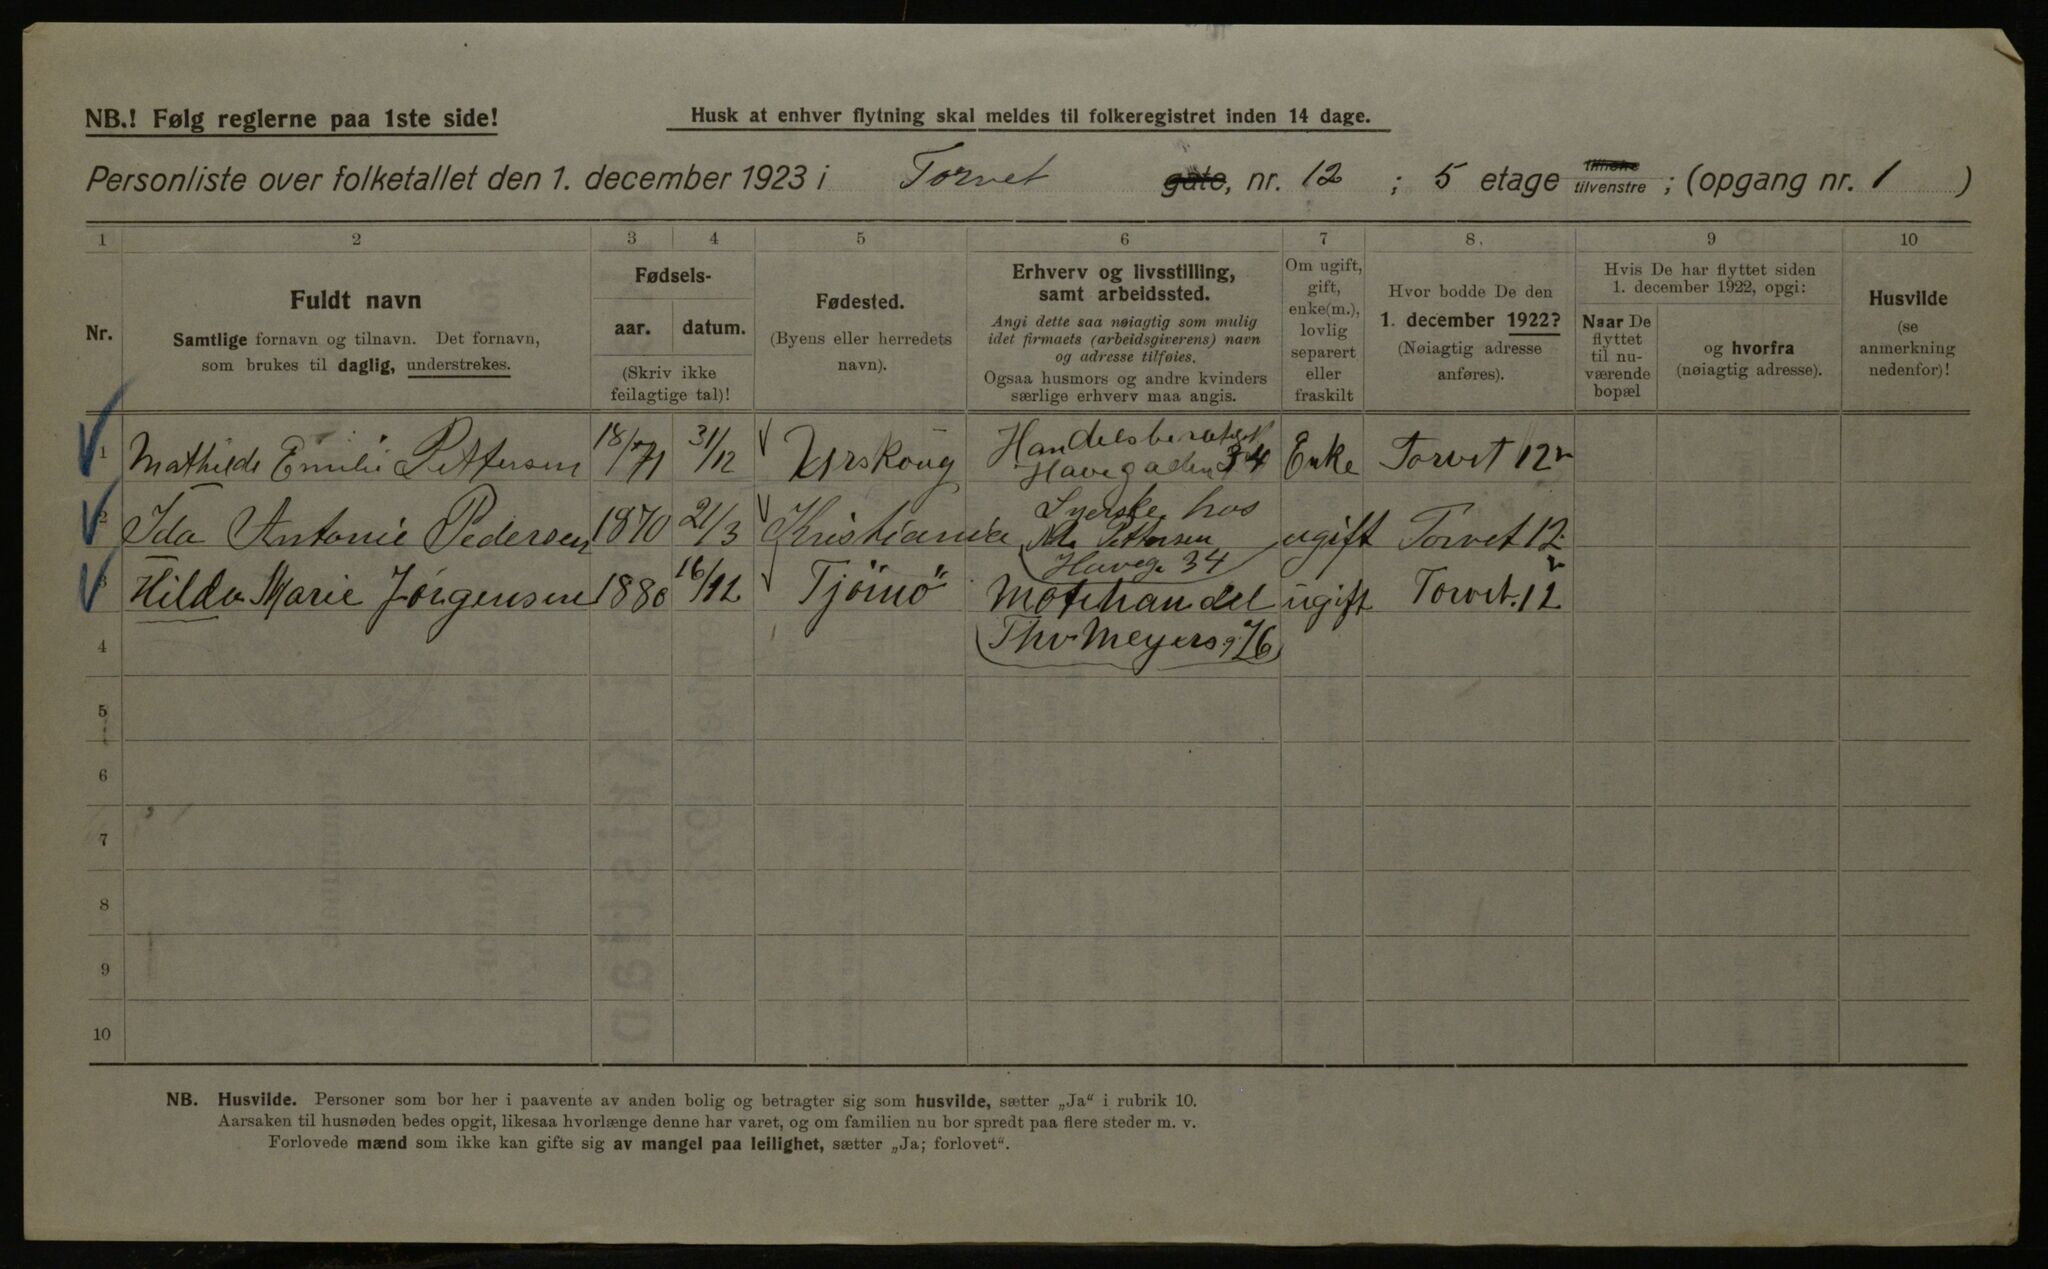 NB.! Følg reglerne paa 1ste side!
Husk at enhver flytning skal meldes til folkeregistret inden 14 dage.
Personliste over folketallet den 1. december 1923 i Torvet gate, nr. 12 ; 5 etage tilhøire tilvenstre ; (opgang nr. 1 )
1 2 3 4 5 6 7 8. 9 10
Nr.
Fuldt navn
Samtlige fornavn og tilnavn. Det fornavn,
som brukes til daglig, understrekes.
Fødsels-
aar. datum.
(Skriv ikke
feilagtige tal)!
Fødested.
(Byens eller herredets
navn).
Erhverv og livsstilling,
samt arbeidssted.
Angi dette saa nøiagtig som mulig
idet firmaets (arbeidsgiverens) navn
og adresse tilføies.
Ogsaa husmors og andre kvinders
særlige erhverv maa angis.
Om ugift,
gift,
enke(m.),
lovlig
separert
eller
fraskilt
Hvor bodde De den
1. december 1922?
(Nøiagtig adresse
anføres).
Hvis De har flyttet siden
1. december 1922, opgi:
Naar De
flyttet
til nu-
værende
bopæl
og hvorfra
(nøiagtig adresse).
Husvilde
(se
anmerkning
nedenfor)!
1 Mathilde Emilie Pettersen 18/71 31/12 Urskoug Handelsberettiget Havegaden 34 Enke Torvet 12
2 Ida Antonie Pedersen 1870 21/3 Kristiania Syerske hos Pettersen Haveg. 34 ugift Torvet 12
3 Hilda Marie Jørgensen 1880 16/12 Tjömö Motehandel ugift Torvet 12
4 Thv Meyers g 76
5
6
7
8
9
10
NB. Husvilde. Personer som bor her i paavente av anden bolig og betragter sig som husvilde, sætter „Ja“ i rubrik 10.
Aarsaken til husnøden bedes opgit, likesaa hvorlænge denne har varet, og om familien nu bor spredt paa flere steder m. v.
Forlovede mænd som ikke kan gifte sig av mangel paa leilighet, sætter „Ja; forlovet“.